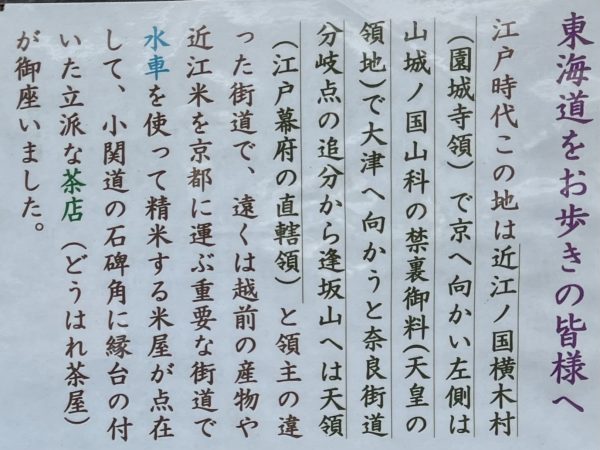 東海道をお歩きの皆様へ
江戸時代この地は近江ノ国横木村
（園城寺領）で京へ向かい左側は
山城ノ国山科の禁裏御料（天皇の
領地）で大津へ向かうと奈良街道
分岐点の追分から逢坂山へは天領
（江戸幕府の直轄領）と領主の違
った街道で、遠くは越前の産物や
近江米を京都に運ぶ重要な街道で
水車を使って精米する米屋が点在
して、小関道の石碑角に縁台の付
いた立派な茶店（どうはれ茶屋）
が御座いました。